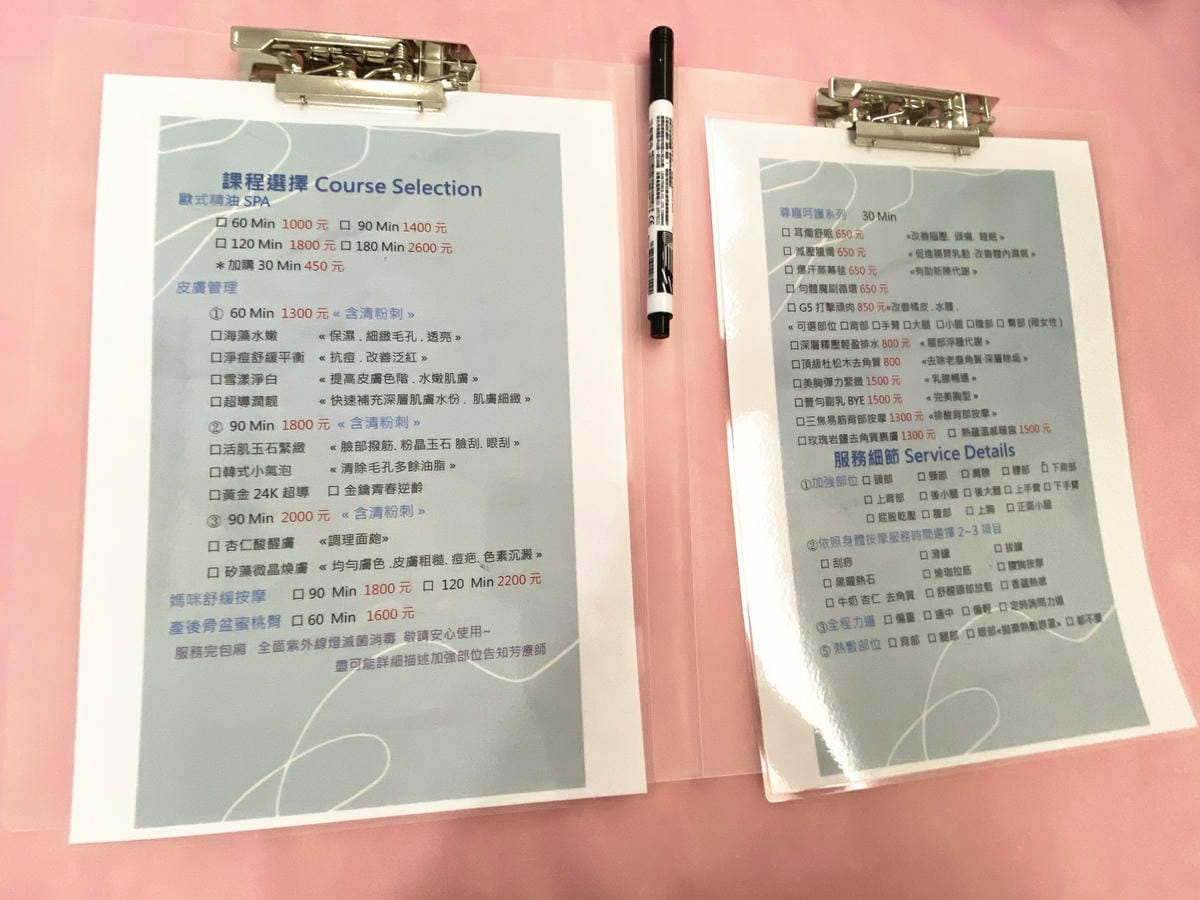 課程選擇 Course Selection
歐式精油 SPA
☐ 60 Min 1000 元 ☐ 90 Min 1400 元
☐ 120 Min 1800 元 ☐ 180 Min 2600 元
＊加購 30 Min 450 元
皮膚管理
① 60 Min 1300 元 « 含清粉刺 »
☐海藻水嫩 « 保濕 . 細緻毛孔 . 透亮 »
☐淨痘舒緩平衡 « 抗痘 . 改善泛紅 »
☐雪漾淨白 « 提高皮膚色階 . 水嫩肌膚 »
☐超導潤靚 « 快速補充深層肌膚水份 . 肌膚細緻 »
② 90 Min 1800 元 « 含清粉刺 »
☐活肌玉石緊緻 « 臉部撥筋. 粉晶玉石 臉刮. 眼刮 »
☐韓式小氣泡 « 清除毛孔多餘油脂 »
☐黃金 24K 超導 ☐ 金鑰青春逆齡
③ 90 Min 2000 元 « 含清粉刺 »
☐ 杏仁酸醒膚 «調理面皰»
☐ 矽藻微晶煥膚 « 均勻膚色 .皮膚粗糙. 痘疤. 色素沉澱 »
媽咪舒緩按摩 ☐ 90 Min 1800 元 ☐ 120 Min 2200 元
產後骨盆蜜桃臀 ☐ 60 Min 1600 元
服務完包廂 全面紫外線燈滅菌消毒 敬請安心使用~
盡可能詳細描述加強部位告知芳療師
尊寵呵護系列 30 Min
☐ 耳燭舒眠 650 元 «改善腦壓. 頭痛. 睡眠 »
☐ 減壓臍燭 650 元 « 促進腸胃乳動 .改善體內濕氣 »
☐ 爆汗蒸幕毯 650 元 «有助新陳代謝 »
☐ 勻體魔刷循環 650 元
☐ G5 打擊頑肉 850 元«改善橘皮 . 水腫 .
« 可選部位 ☐背部 ☐手臂 ☐大腿 ☐小腿 ☐腹部 ☐ 臀部 (限女性)
☐深層釋壓輕盈排水 800 元 « 腿部浮腫代謝 »
☐頂級杜松木去角質 800 «去除老廢角質.深層除垢 »
☐美胸彈力緊緻 1500 元 « 乳腺暢通 »
☐豐勻副乳 BYE 1500 元 « 完美胸型 »
☐三焦易筋背部按摩 1300 元 «排酸背部按摩 »
☐玫瑰岩鹽去角質裹膚 1300 元 ☐ 熱蘊溫感暖宮 1500 元
服務細節 Service Details
①加強部位 ☐ 頭部 ☐ 頸部 ☐ 肩膀 ☐ 腰部 ☐ 下背部
☐ 上背部 ☐ 後小腿 ☐ 後大腿 ☐ 上手臂 ☐ 下手臂
☐ 屁股乾壓 ☐ 腹部 ☐ 上胸 ☐ 正面小腿
②依照身體按摩服務時間選擇 2~3 項目
☐ 刮痧 ☐ 滑罐 ☐ 拔罐
☐ 黑曜熱石 ☐ 瑜珈拉筋 ☐ 腹胸按摩
☐ 牛奶 杏仁 去角質 ☐ 舒醒頭部放鬆 ☐ 香蘊熱感
③全程力道 ☐ 偏重 ☐ 適中 ☐ 偏輕 ☐ 定時詢問力道
⑤熱敷部位 ☐ 背部 ☐ 腿部 ☐ 眼部«拋棄熱敷眼罩» ☐ 都不要